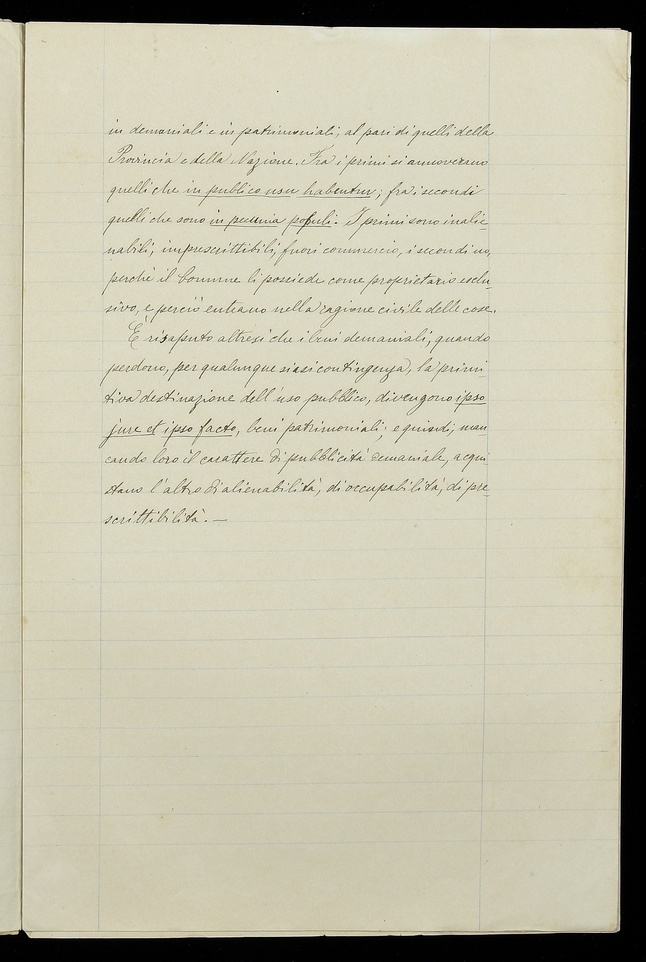 in demaniali e in patrimoniali, al pari di quelli della
Provincia e della Nazione. Fra i primi si annoverano
quelli che in publico usu habentur; fra i secondi
quelli che sono in pecunia populi. I primi sono inalie-
nabili, imprescrittibili, fuori commercio, i secondi no,
perchè il Comune li possiede come proprietario esclu-
sivo, e perciò entrano nella ragione civile delle cose.
È risaputo altresì che i beni demaniali, quando
perdono, per qualunque siasi contingenza, la primi-
tiva destinazione dell'uso pubblico, divengono ipso
jure et ipso facto, beni patrimoniali; e quindi, man
cando loro il carattere di pubblicità demaniale, acqui-
stano l'altro di alienabilità, di occupabilità, di pre-
scrittibilità. —